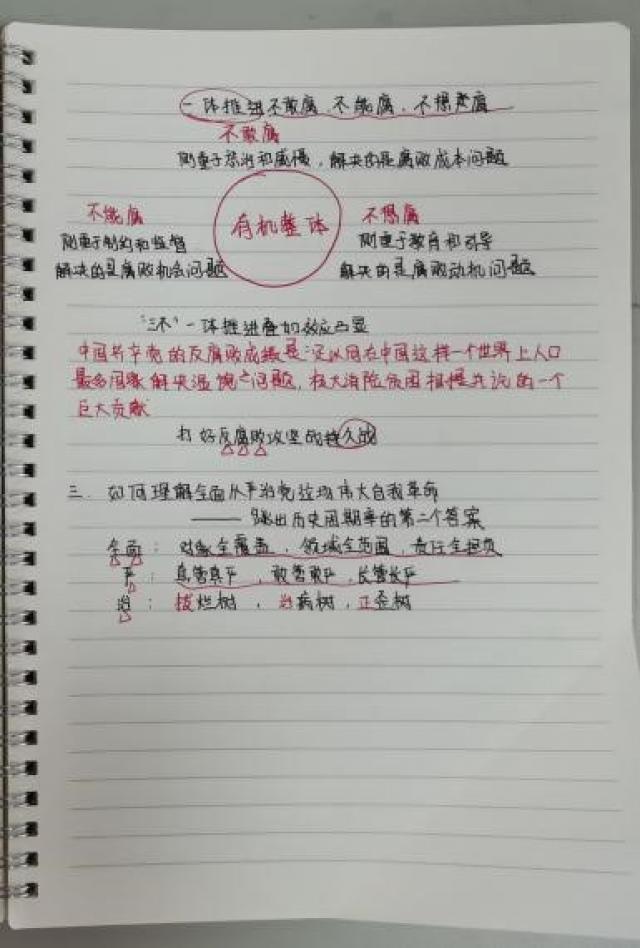 一体推进不敢腐、不能腐、不想腐
不敢腐
侧重于惩治和威慑，解决的是腐败成本问题
不能腐
侧重于制约和监督
解决的是腐败机会问题
有机整体
不想腐
侧重于教育和引导
解决的是腐败动机问题
"三不"一体推进叠加效应凸显
中国共产党的反腐败成绩是可以同在中国这样一个世界上人口
最多国家解决温饱之问题，极大消除贫困相提并论的一个
巨大贡献
打好反腐败攻坚战持久战
三、如何理解全面从严治党这场伟大自我革命
—— 跳出历史周期率的第二个答案
全面：对象全覆盖、领域全范围、责任全担负
严：真管真严、敢管敢严、长管长严
治：拔烂树、治病树、正歪树